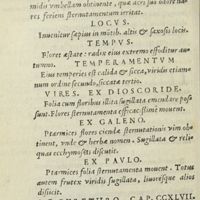 midio vmbellam obtinent, quæ acri suo odore na-
res feriens sternutamentum irritat.
LOCVS.
Inuenitur sæpius in mõtib. altis & saxosis locis.
TEMPVS.
Flores æstate: radix eius extremo effoditur au-
tumno.
TEMPERAMENTVM
Eius temperies est calida & sicca, viridis etiam-
num ordine secundo, siccatæ tertio.
VIRES. EX DIOSCORIDE,
Folia cum floribus illita sugillata emendare pos-
sunt. Flores sternutamenta efficacissimè mouent.
EX GALENO.
Ptarmices flores ciendæ sternutationis vim ob-
tinent, vnde & herbæ nomen. Sugillata & reli-
quas ecchymoses discutit.
EX PAVLO.
Ptarmices folia sternutamenta mouent. Totus
autem frutex viridis sugillata, liuoresque alios
discutit.
CAP. CCXLVII.